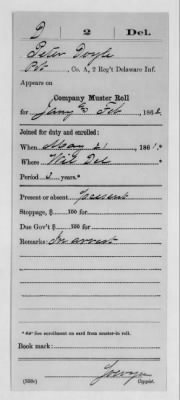 D 2 Del.
Peter Doyle
Pvt, Co. A, 2 Reg't Delaware Inf.
Appears on
Company Muster Roll
for Jany & Feb, 1862.
Joined for duty and enrolled:
When May 21, 1861.*
Where Wil Del
Period 3 years.*
Present or absent Present
Stoppage, $ 100 for
Due Gov't $ 100 for
Remarks: In arrest
* See enrollment on card from muster-in roll.
Book mark:
(358c) Copyist.